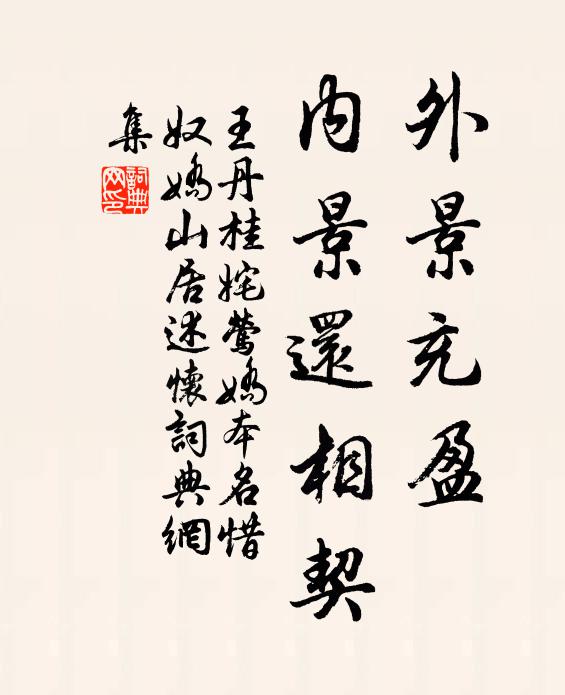 外景充盈
内景還相契
王丹桂姹鶯嬌本名惜
奴嬌山居述懷詞典網
集
詞典
网印